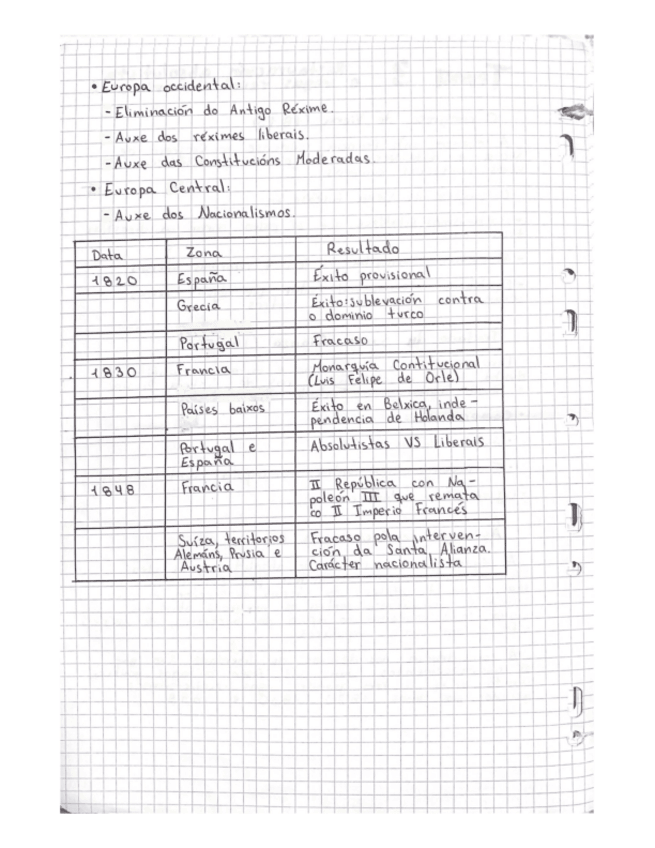 • Europa occidental:
- Eliminación do Antigo Réxime.
- Auxe dos réximes liberais.
- Auxe das Constitucións Moderadas.
• Europa Central:
- Auxe dos Nacionalismos.
Data Zona Resultado
1820 España Éxito provisional
Grecia Éxito: sublevación contra
o dominio turco
Portugal Fracaso
1830 Francia Monarquía Contitucional
(Luis Felipe de Orle)
Países baixos Éxito en Belxica, inde-
pendencia de Holanda
Portugal e Absolutistas VS Liberais
España
1848 Francia II República con Na-
poleón III que remata
co II Imperio Francés
Suíza, territorios Fracaso pola interven-
Alemáns, Prusia e ción da Santa Alianza.
Austria Carácter nacionalista